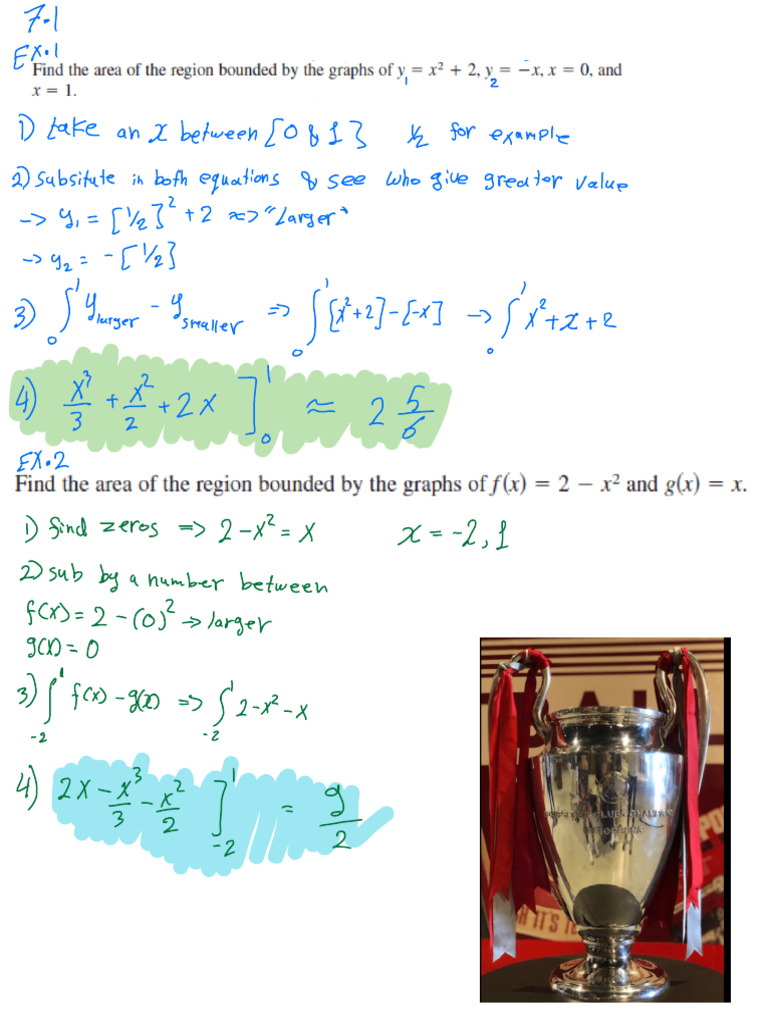 7.1
Ex.1
Find the area of the region bounded by the graphs of y₁ = x² + 2, y₂ = −x, x = 0, and
x = 1.
1) take an x between [0 & 1} ½ for example
2) Subsitute in both equations & see who give greater value
→ y₁ = [½]² + 2 ⇒ "Larger"
→ y₂ = -[½}
3) ∫₀¹ y larger - y smaller ⇒ ∫₀¹ [x²+2] - [-x] → ∫₀¹ x² + x + 2
4) x³/3 + x²/2 + 2x ]₀¹ ≈ 2 5/6
EX.2
Find the area of the region bounded by the graphs of f(x) = 2 − x² and g(x) = x.
1) find zeros ⇒ 2-x² = x x = -2, 1
2) sub by a number between
f(x) = 2 - (0)² → larger
g(x) = 0
3) ∫₋₂¹ f(x) - g(x) ⇒ ∫₋₂¹ 2-x²-x
4) 2x - x³/3 - x²/2 ]₋₂¹ = 9/2
IT'S